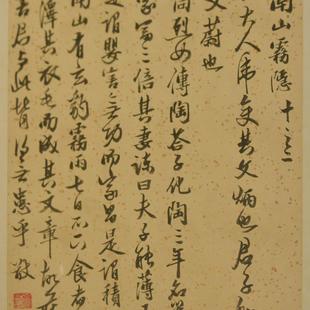 南山霧隱 十之一
大人虎變其文炳也君子
文蔚也
烈女傳陶荅子治陶三年名
家富三倍其妻諫曰夫子能薄
是謂嬰害無功而家昌是謂積
南山有玄豹霧雨七日不下食者
澤其衣毛而成其文章故